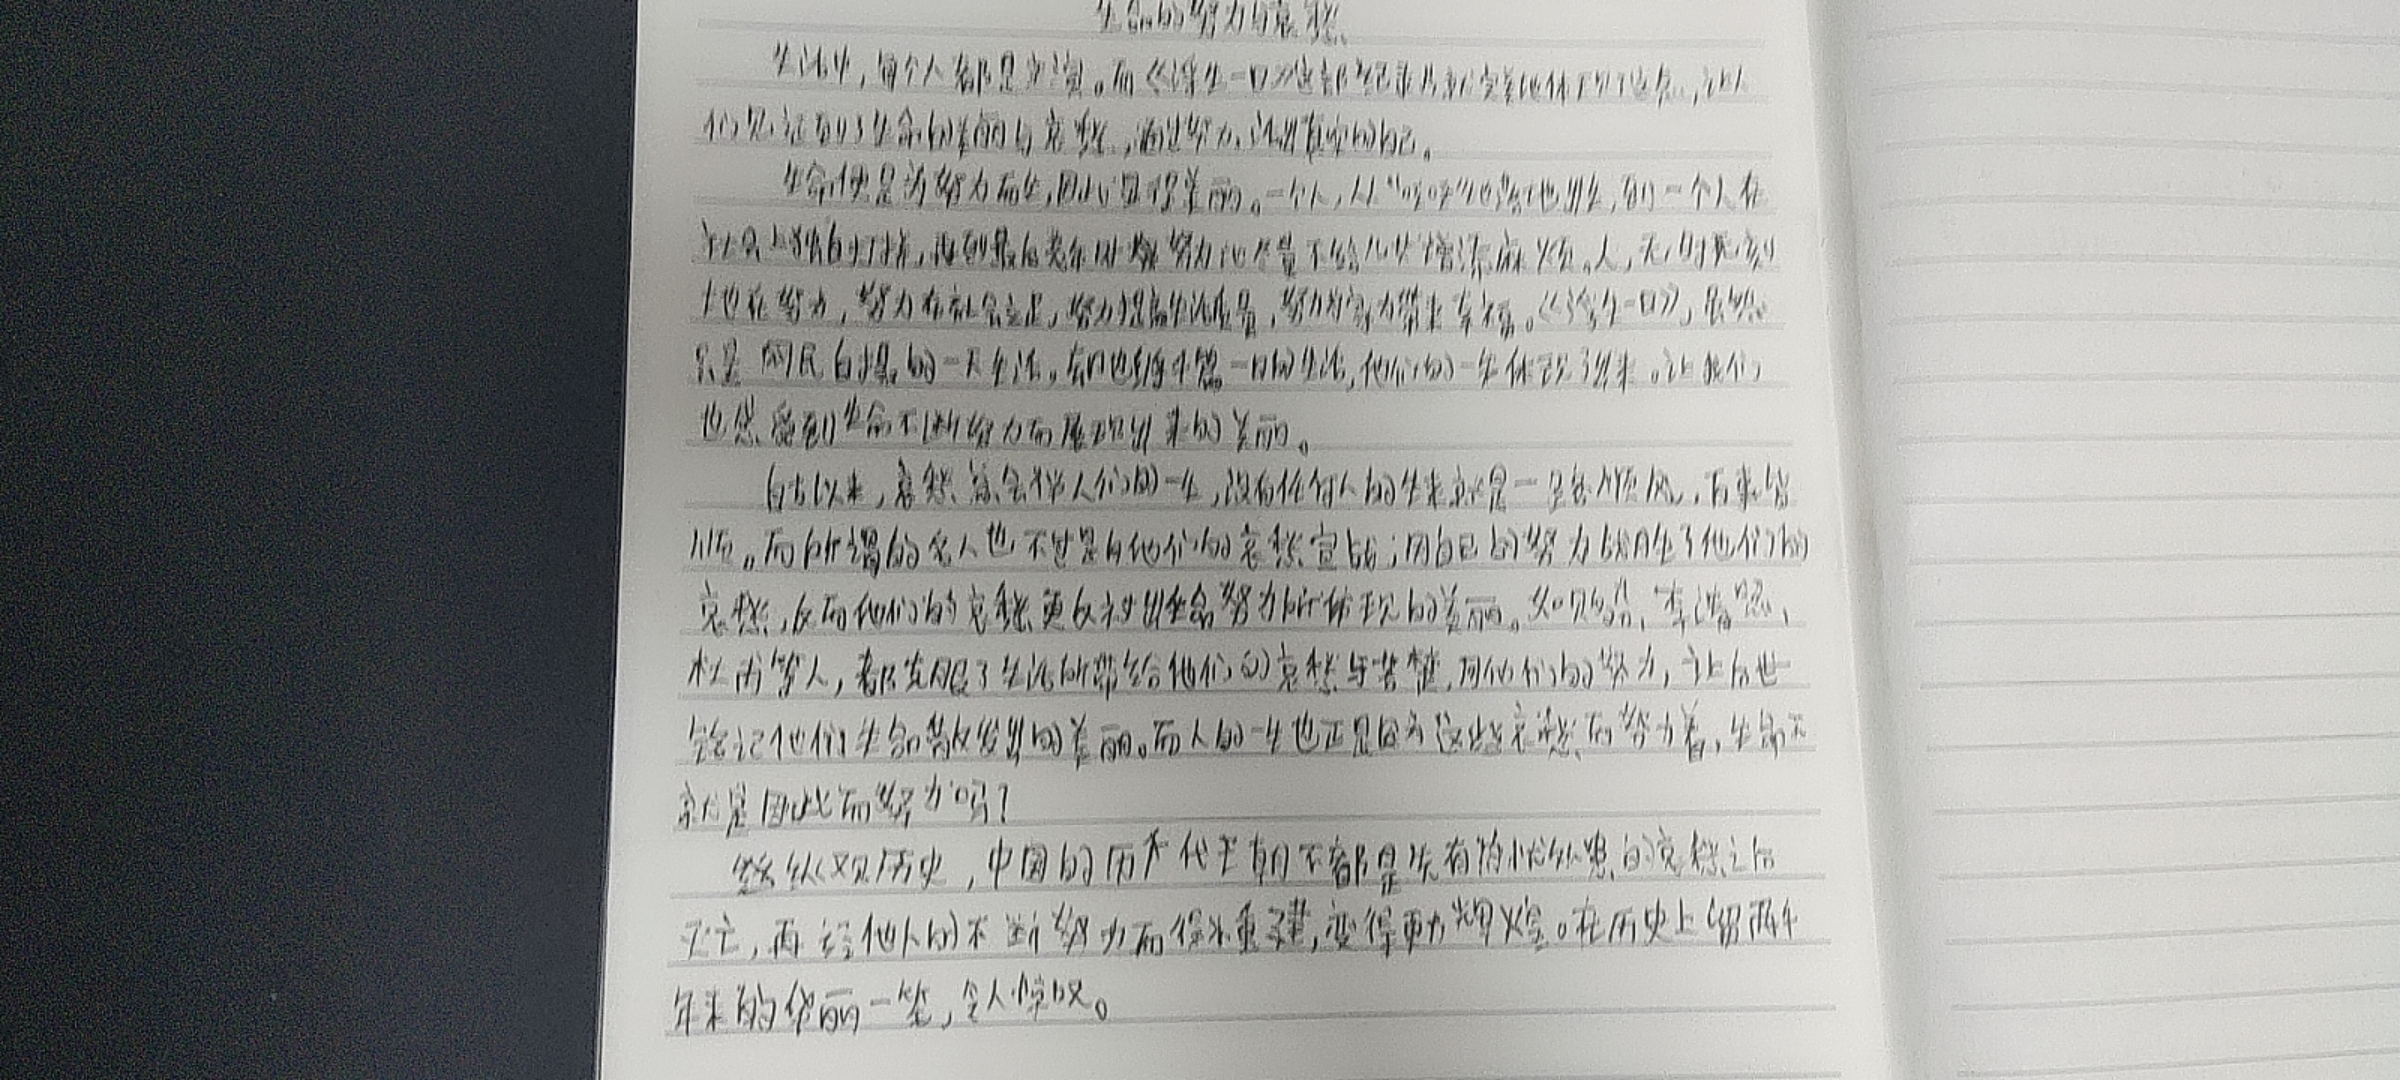 生命的努力与哀愁
生活中，每个人都是主演。而《浮生一日》这部纪录片就完美地体现了这点，让人
们见证到了生命的美丽与哀愁，通过努力，活出真实的自己。
生命便是为努力而生，因此显得美丽。一个人，从“呱呱”地落地出生，到一个人在
社会上独自打拼，再到最后老年时努力地尽量不给儿女增添麻烦。人，无时无刻
地在努力，努力在社会立足，努力提高生活质量，努力为家力带来幸福。《浮生一日》，虽然
只是网民自摄的一天生活。却也将平凡一日的生活，他们的一生体现了出来。让我们
也感受到生命不断努力而展现出来的美丽。
自古以来，哀愁总会伴人们的一生，没有任何人的生来就是一路顺风，万事皆
顺。而所谓的名人也不过是向他们的哀愁宣战；用自己的努力战胜了他们的
哀愁，反而他们的哀愁更反衬出生命努力所体现的美丽。如贝多芬、李清照、
杜甫等人，都克服了生活所带给他们的哀愁与苦难，用他们的努力，让后世
铭记他们生命散发出的美丽。而人的一生也正是因为这些哀愁而努力着，生命不
就是因此而努力吗？
纵观历史，中国的历代王朝不都是先有内忧外患的哀愁之后
灭亡，再经他人的不断努力而得以重建，变得更为辉煌。在历史上留下千
年来的华丽一笔，令人惊叹。